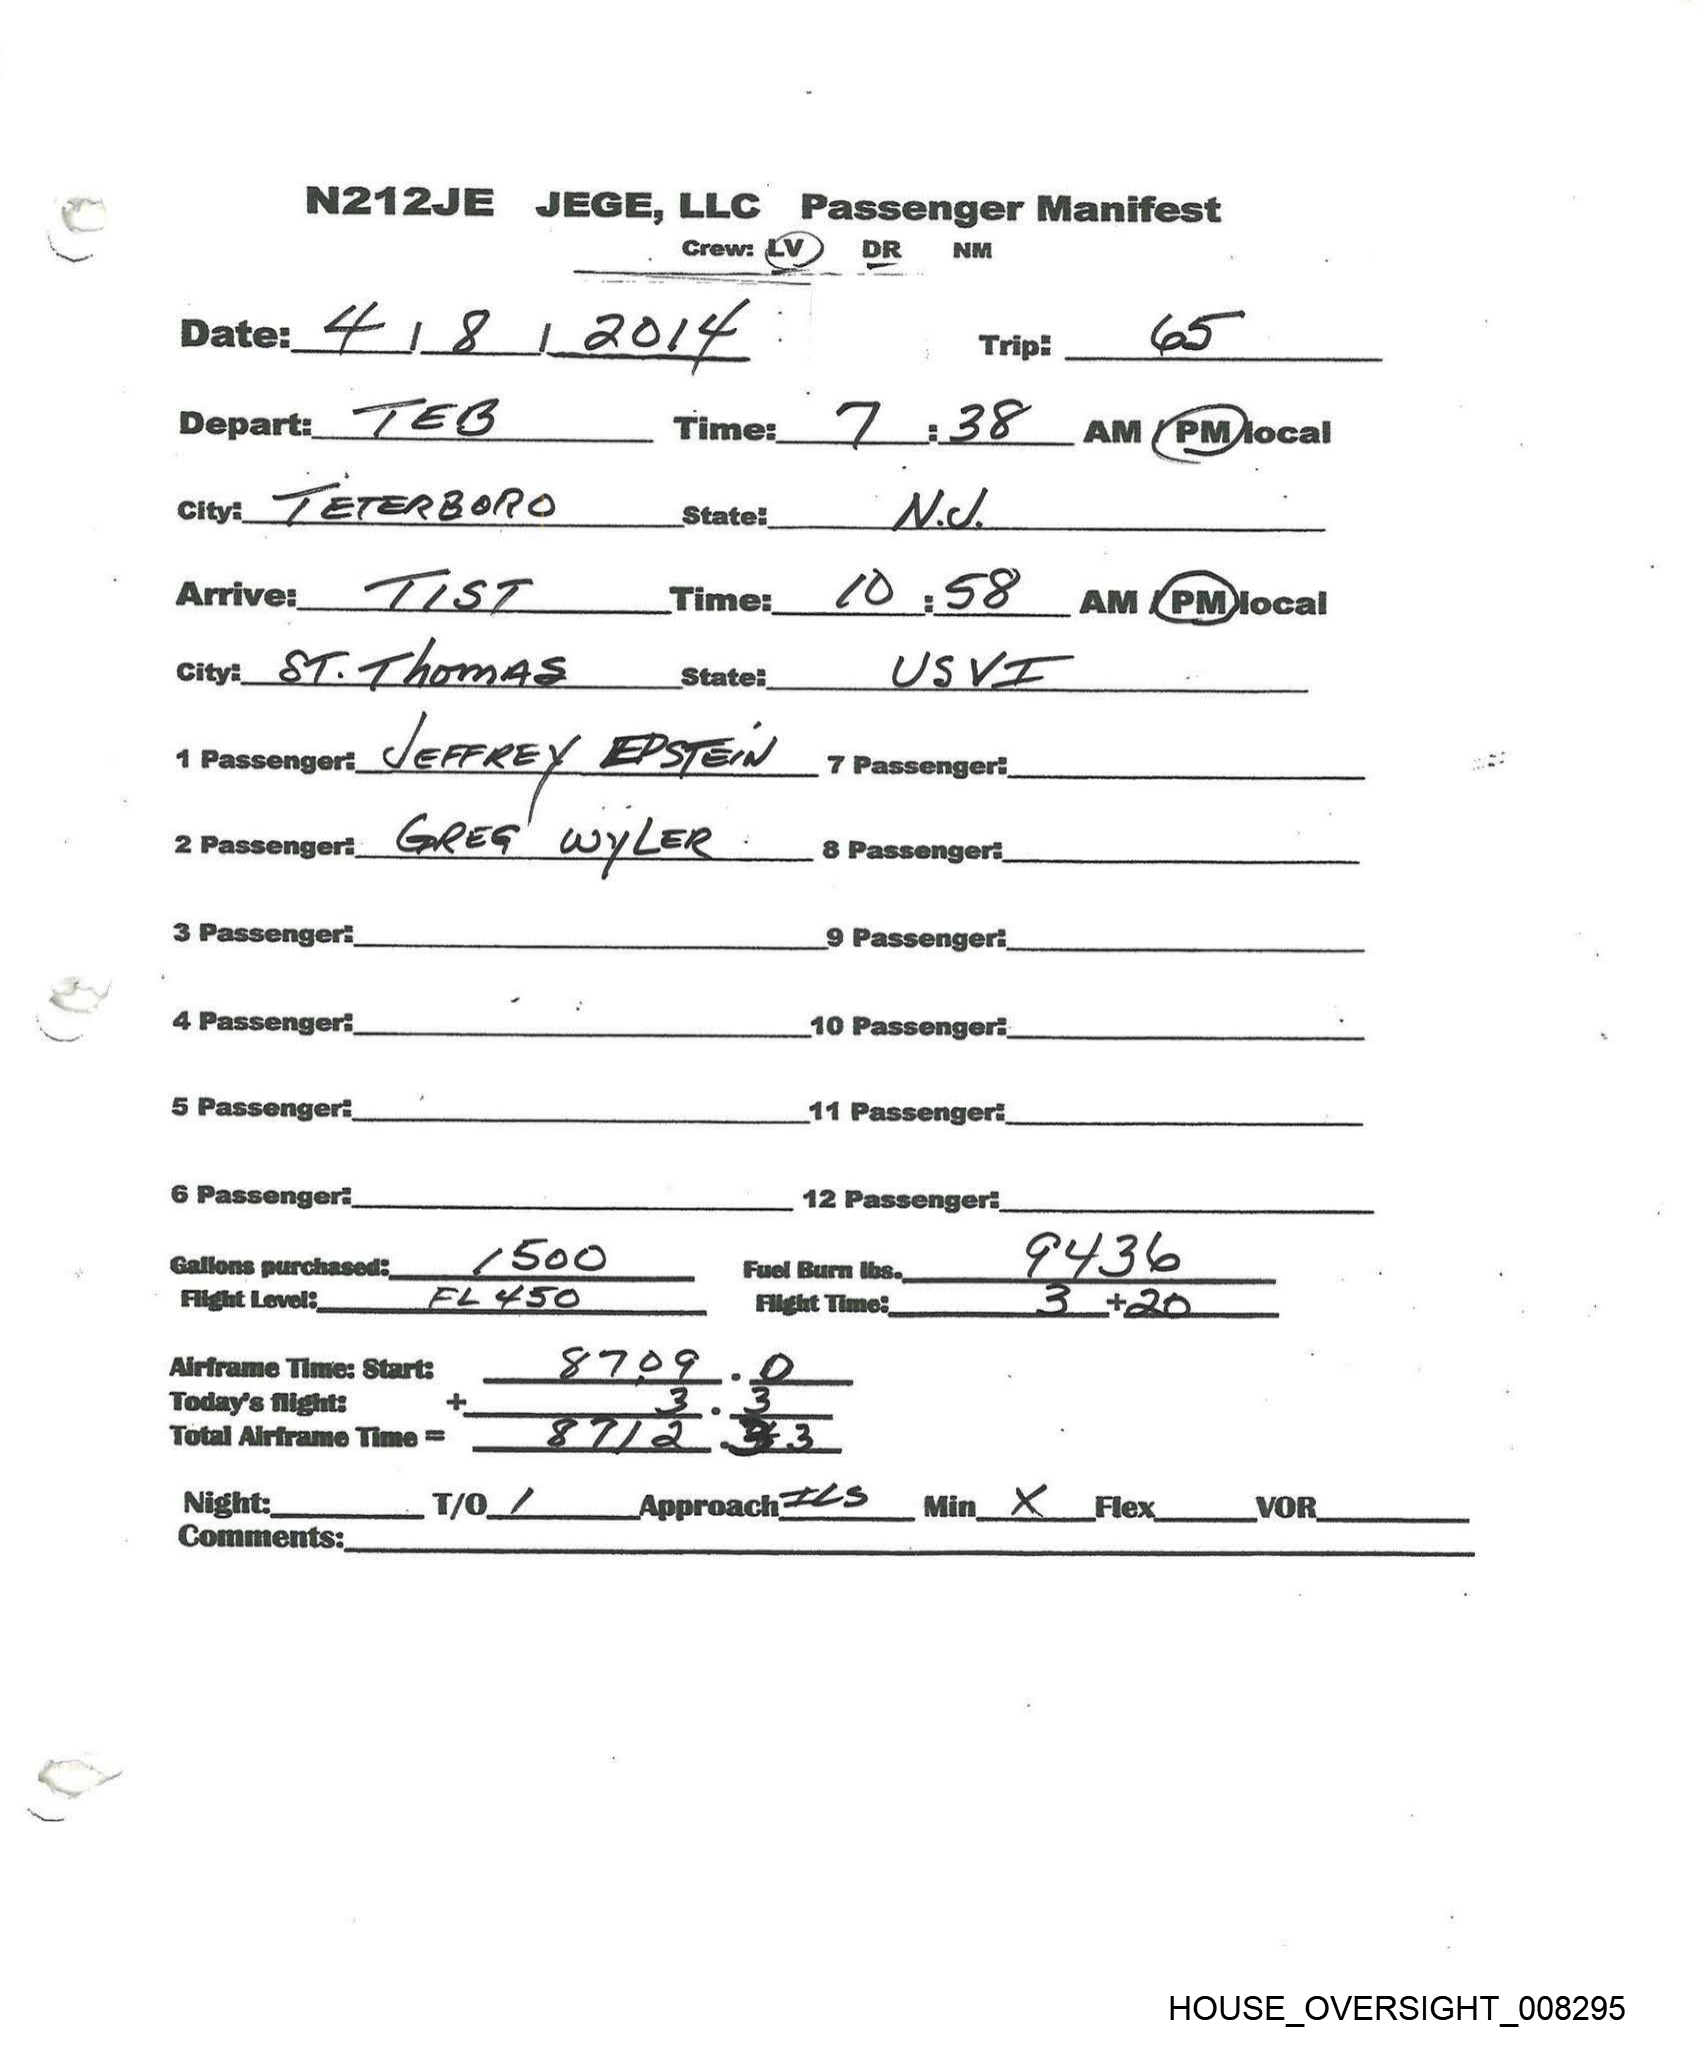 N212JE JEGE, LLC Passenger Manifest
Crew: LV DR NM
Date: 4 / 8 / 2014 Trip: 65
Depart: TEB Time: 7 : 38 AM / PM local
City: TETERBORO State: N.J.
Arrive: TIST Time: 10 : 58 AM / PM local
City: ST. ThomAS State: USVI
1 Passenger: JEFFREY EPSTEiN 7 Passenger:
2 Passenger: GREG WyLER 8 Passenger:
3 Passenger: 9 Passenger:
4 Passenger: 10 Passenger:
5 Passenger: 11 Passenger:
6 Passenger: 12 Passenger:
Gallons purchased: 1500 Fuel Burn lbs. 9436
Flight Level: FL 450 Flight Time: 3 +20
Airframe Time: Start: 8709 . 0
Today's flight: + 3 . 3
Total Airframe Time = 8712 . 3
Night: T/O 1 Approach ILS Min X Flex VOR
Comments:
HOUSE_OVERSIGHT_008295